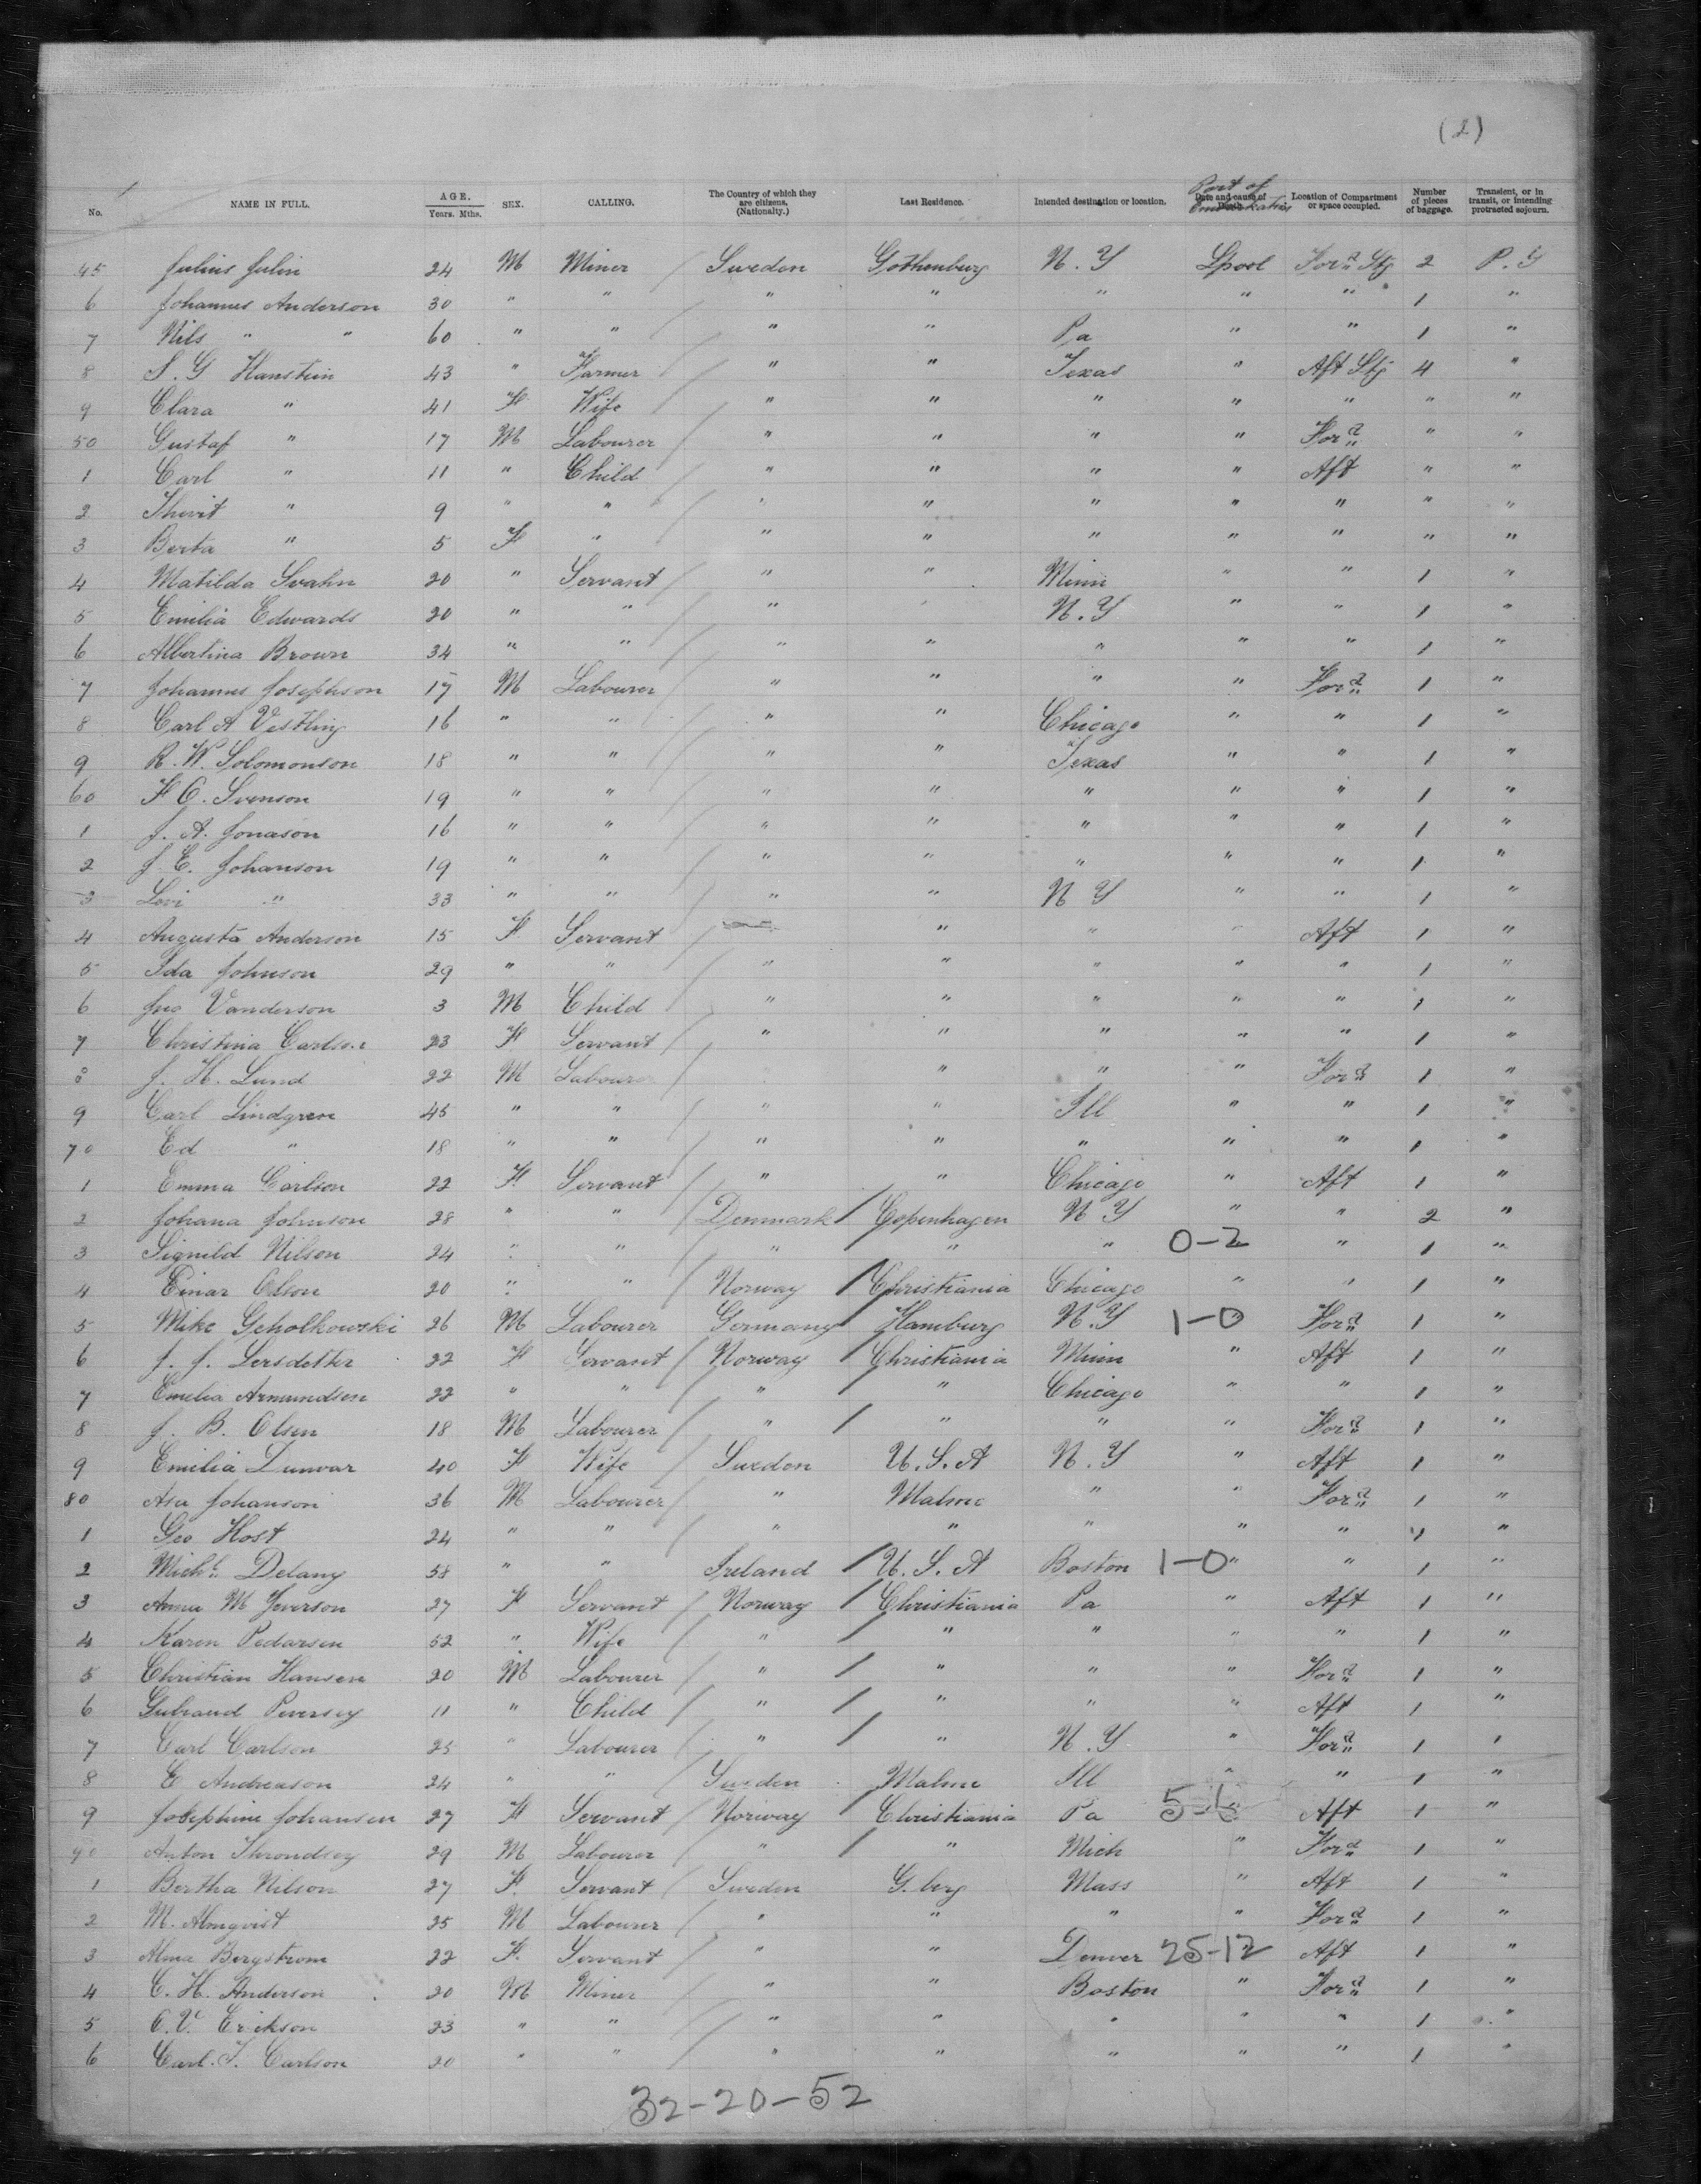 (2)
No. NAME IN FULL. AGE. Years. Mths. SEX. CALLING. The Country of which they are citizens. (Nationality.) Last Residence. Intended destination or location. Date and cause of Death. Port of Embarkation Location of Compartment or space occupied. Number of pieces of baggage. Transient, or in transit, or intending protracted sojourn.
45 Julius Julin 24 M Miner / Sweden Gothenburg N.Y Lpool For'd Stg 2 P.S
6 Johannes Anderson 30 " " / " " " " " 1 "
7 Nils " " 60 " " / " " Pa " " 1 "
8 S. G Hanstein 43 " Farmer / " " Texas " Aft Stg 4 "
9 Clara " 41 F Wife / " " " " " " "
50 Gustaf " 17 M Labourer / " " " " For'd " "
1 Carl " 11 " Child / " " " " Aft " "
2 Thurit " 9 " " / " " " " " " "
3 Berta " 5 F " / " " " " " " "
4 Matilda Svahn 20 " Servant / " " Minn " " 1 "
5 Emilia Edwards 20 " " / " " N.Y " " 1 "
6 Albertina Brown 34 " " / " " " " " 1 "
7 Johannes Josephson 17 M Labourer / " " " " For'd 1 "
8 Carl A Vestling 16 " " / " " Chicago " " 1 "
9 R. W. Solomonson 18 " " / " " Texas " " 1 "
60 F O. Svenson 19 " " / " " " " " 1 "
1 J. A. Jonason 16 " " / " " " " " 1 "
2 J. E. Johanson 19 " " / " " " " " 1 "
3 Levi " 33 " " / " " N Y " " 1 "
4 Augusta Anderson 15 F Servant / " " " Aft 1 "
5 Ida Johnson 29 " " / " " " " " 1 "
6 Jno Vanderson 3 M Child / " " " " " 1 "
7 Christina Carlson 23 F Servant / " " " " " 1 "
8 J. H. Lund 22 M Labourer / " " " For'd 1 "
9 Carl Lindgren 45 " " / " " Ill " " 1 "
70 Ed " 18 " " / " " " " " 1 "
1 Emma Carlson 22 F Servant / " " Chicago " Aft 1 "
2 Johana Johnson 28 " " / Denmark / Copenhagen N Y " " 2 "
3 Signild Nilson 24 " " / " / " " 0-2 " 1 "
4 Einar Olson 20 " " / Norway / Christiania Chicago " " 1 "
5 Mike Scholkowski 26 M Labourer Germany / Hamburg N.Y 1-0 For'd 1 "
6 J. J. Lersdetter 22 F Servant / Norway / Christiania Minn " Aft 1 "
7 Emelia Armundsen 22 " " / " / " Chicago " " 1 "
8 J. B. Olsen 18 M Labourer / " / " " " For'd 1 "
9 Emilia Lunvar 40 F Wife / Sweden U.S.A N.Y " Aft 1 "
80 Asa Johanson 36 M Labourer / " Malmo " " For'd 1 "
1 Geo Host 24 " " / " " " " " 1 "
2 Mich'l Delany 58 " " Ireland / U.S.A Boston 1-0 " " 1 "
3 Anna M Jverson 27 F Servant / Norway / Christiania Pa " Aft 1 "
4 Karen Pedarsen 52 " Wife / " / " " " " 1 "
5 Christian Hansen 20 M Labourer / " / " " " For'd 1 "
6 Gulraud Peversey 11 " Child / " / " " " Aft 1 "
7 Carl Carlson 25 " Labourer / " / " N.Y " For'd 1 "
8 C Andreason 24 " " / Sweden Malmo Ill " " 1 "
9 Josephine Johansen 27 F Servant / Norway / Christiania Pa 5-6 Aft 1 "
90 Anton Throndsey 29 M Labourer / " / " Mich " For'd 1 "
1 Bertha Nilson 27 F Servant / Sweden G.berg Mass " Aft 1 "
2 M. Almqvist 25 M Labourer / " " " " For'd 1 "
3 Alma Bergstrom 22 F Servant / " " Denver 25-12 Aft 1 "
4 C. H. Anderson 20 M Miner / " " Boston " For'd 1 "
5 C.V. Erickson 23 " " / " " " " " 1 "
6 Carl. J. Carlson 20 " " / " " " " " 1 "
32-20-52